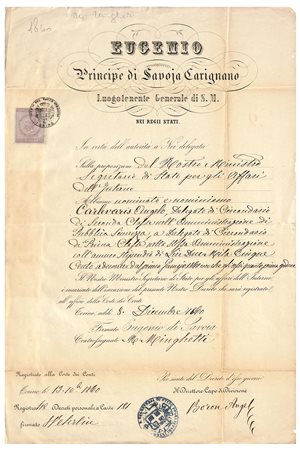 EUGENIO
Principe di Savoja Carignano
Luogotenente Generale di S. M.
NEI REGII STATI.
In virtù dell'autorità a Noi delegata
Sulla proposizione del Nostro Ministro
Segretario di Stato per gli Affari
dell' Interno
Abbiamo nominato e nominiamo
Angelo, Delegato di Circondario
di Seconda Classe nell' Amministrazione di
Pubblica Sicurezza, a Delegato di Circondario
di Prima Classe nella stessa Amministrazione
coll'annuo stipendio di Lire
Il Nostro Ministro Segretario di Stato per gli affari dell' Interno,
è incaricato dell'esecuzione del presente Nostro Decreto che sarà registrato
all'ufficio della Corte dei Conti
Torino, addì 8. Dicembre 1860
Firmato Eugenio di Savoia
Contrassegnato M. Minghetti
Registrato alla Corte dei Conti
Torino addì 1860
Decreti personali a Carte 181
firmato
Per sunto del Decreto d'egual giorno
Il Direttore Capo di Divisione